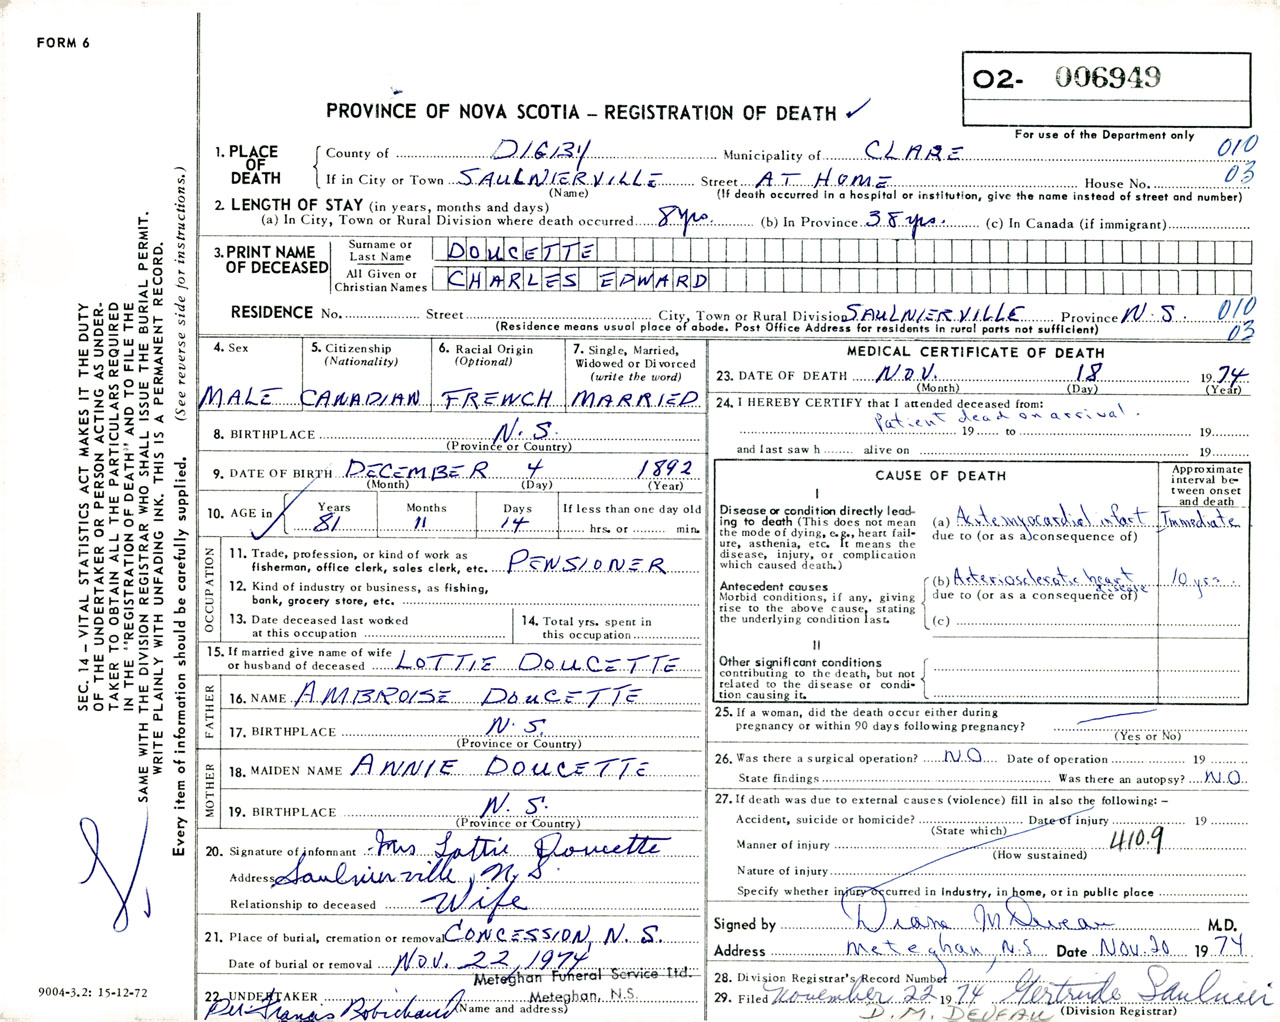 FORM 6
O2- 006949
For use of the Department only
PROVINCE OF NOVA SCOTIA – REGISTRATION OF DEATH ✓
SEC. 14 – VITAL STATISTICS ACT MAKES IT THE DUTY
OF THE UNDERTAKER OR PERSON ACTING AS UNDER-
TAKER TO OBTAIN ALL THE PARTICULARS REQUIRED
IN THE "REGISTRATION OF DEATH" AND TO FILE THE
SAME WITH THE DIVISION REGISTRAR WHO SHALL ISSUE THE BURIAL PERMIT.
WRITE PLAINLY WITH UNFADING INK. THIS IS A PERMANENT RECORD.
Every item of information should be carefully supplied. (See reverse side for instructions.)
1. PLACE OF DEATH
County of DIGBY Municipality of CLARE 010
If in City or Town SAULNIERVILLE Street AT HOME House No. 03
(Name) (If death occurred in a hospital or institution, give the name instead of street and number)
2. LENGTH OF STAY (in years, months and days)
(a) In City, Town or Rural Division where death occurred 8 yrs. (b) In Province 38 yrs. (c) In Canada (if immigrant)
3. PRINT NAME OF DECEASED
Surname or Last Name DOUCETTE
All Given or Christian Names CHARLES EDWARD
RESIDENCE No. Street City, Town or Rural Division SAULNIERVILLE Province N.S. 010
(Residence means usual place of abode. Post Office Address for residents in rural parts not sufficient) 03
4. Sex MALE
5. Citizenship (Nationality) CANADIAN
6. Racial Origin (Optional) FRENCH
7. Single, Married, Widowed or Divorced (write the word) MARRIED
8. BIRTHPLACE N.S.
(Province or Country)
9. DATE OF BIRTH DECEMBER 4 1892
(Month) (Day) (Year)
10. AGE in Years 81 Months 11 Days 14 If less than one day old hrs. or min.
OCCUPATION
11. Trade, profession, or kind of work as
fisherman, office clerk, sales clerk, etc. PENSIONER
12. Kind of industry or business, as fishing,
bank, grocery store, etc.
13. Date deceased last worked
at this occupation
14. Total yrs. spent in
this occupation
15. If married give name of wife
or husband of deceased LOTTIE DOUCETTE
FATHER
16. NAME AMBROISE DOUCETTE
17. BIRTHPLACE N.S.
(Province or Country)
MOTHER
18. MAIDEN NAME ANNIE DOUCETTE
19. BIRTHPLACE N.S.
(Province or Country)
20. Signature of informant Mrs Lottie Doucette
Address Saulnierville, N.S.
Relationship to deceased Wife
21. Place of burial, cremation or removal CONCESSION, N.S.
Date of burial or removal NOV. 22, 1974
Meteghan Funeral Service Ltd.
22. UNDERTAKER Meteghan, N.S.
Per Francis Robichaud (Name and address)
9004-3.2: 15-12-72
MEDICAL CERTIFICATE OF DEATH
23. DATE OF DEATH NOV. 18 1974
(Month) (Day) (Year)
24. I HEREBY CERTIFY that I attended deceased from:
Patient dead on arrival.
19 to 19
and last saw h alive on 19
CAUSE OF DEATH
Approximate interval between onset and death
I
Disease or condition directly lead-
ing to death (This does not mean
the mode of dying, e.g., heart fail-
ure, asthenia, etc. It means the
disease, injury, or complication
which caused death.)
(a) Acute myocardial infarct Immediate
due to (or as a consequence of)
Antecedent causes
Morbid conditions, if any, giving
rise to the above cause, stating
the underlying condition last.
(b) Arteriosclerotic heart disease 10 yrs.
due to (or as a consequence of)
(c)
II
Other significant conditions
contributing to the death, but not
related to the disease or condi-
tion causing it.
25. If a woman, did the death occur either during
pregnancy or within 90 days following pregnancy?
(Yes or No)
26. Was there a surgical operation? NO Date of operation 19
State findings Was there an autopsy? NO
27. If death was due to external causes (violence) fill in also the following: –
Accident, suicide or homicide? Date of injury 19
(State which)
Manner of injury 410.9
(How sustained)
Nature of injury
Specify whether injury occurred in industry, in home, or in public place
Signed by Diane M. Deveau M.D.
Address Meteghan, N.S. Date Nov. 20 1974
28. Division Registrar's Record Number
29. Filed November 22 1974 Gertrude Saulnier
D. M. DEVEAU (Division Registrar)